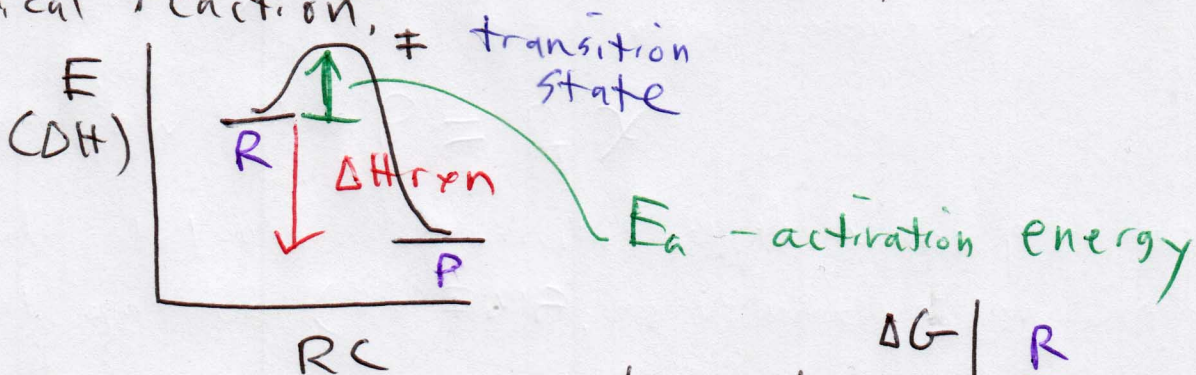 ical reaction,
‡ transition
state
E
(ΔH)
R
ΔHrxn
P
Ea - activation energy
RC
ΔG
R